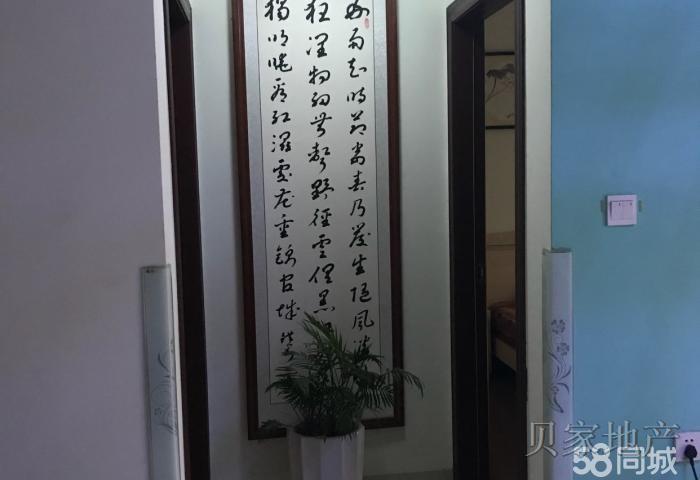 好雨知時節當春乃發生隨風潛
夜潤物細無聲野徑雲俱黑
獨明曉看紅濕處花重錦官城
贝家地产
58同城